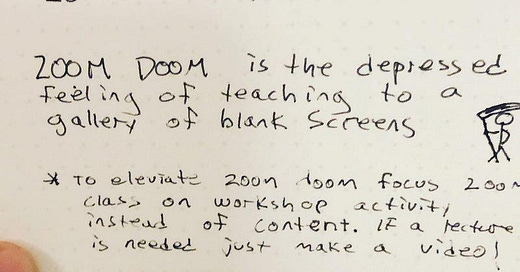 ZOOM DOOM is the depressed
feeling of teaching to a
gallery of blank screens
* To eleviate zoon doom focus zoom
class on workshop activity
instead of content. If a lecture
is needed just make a video!